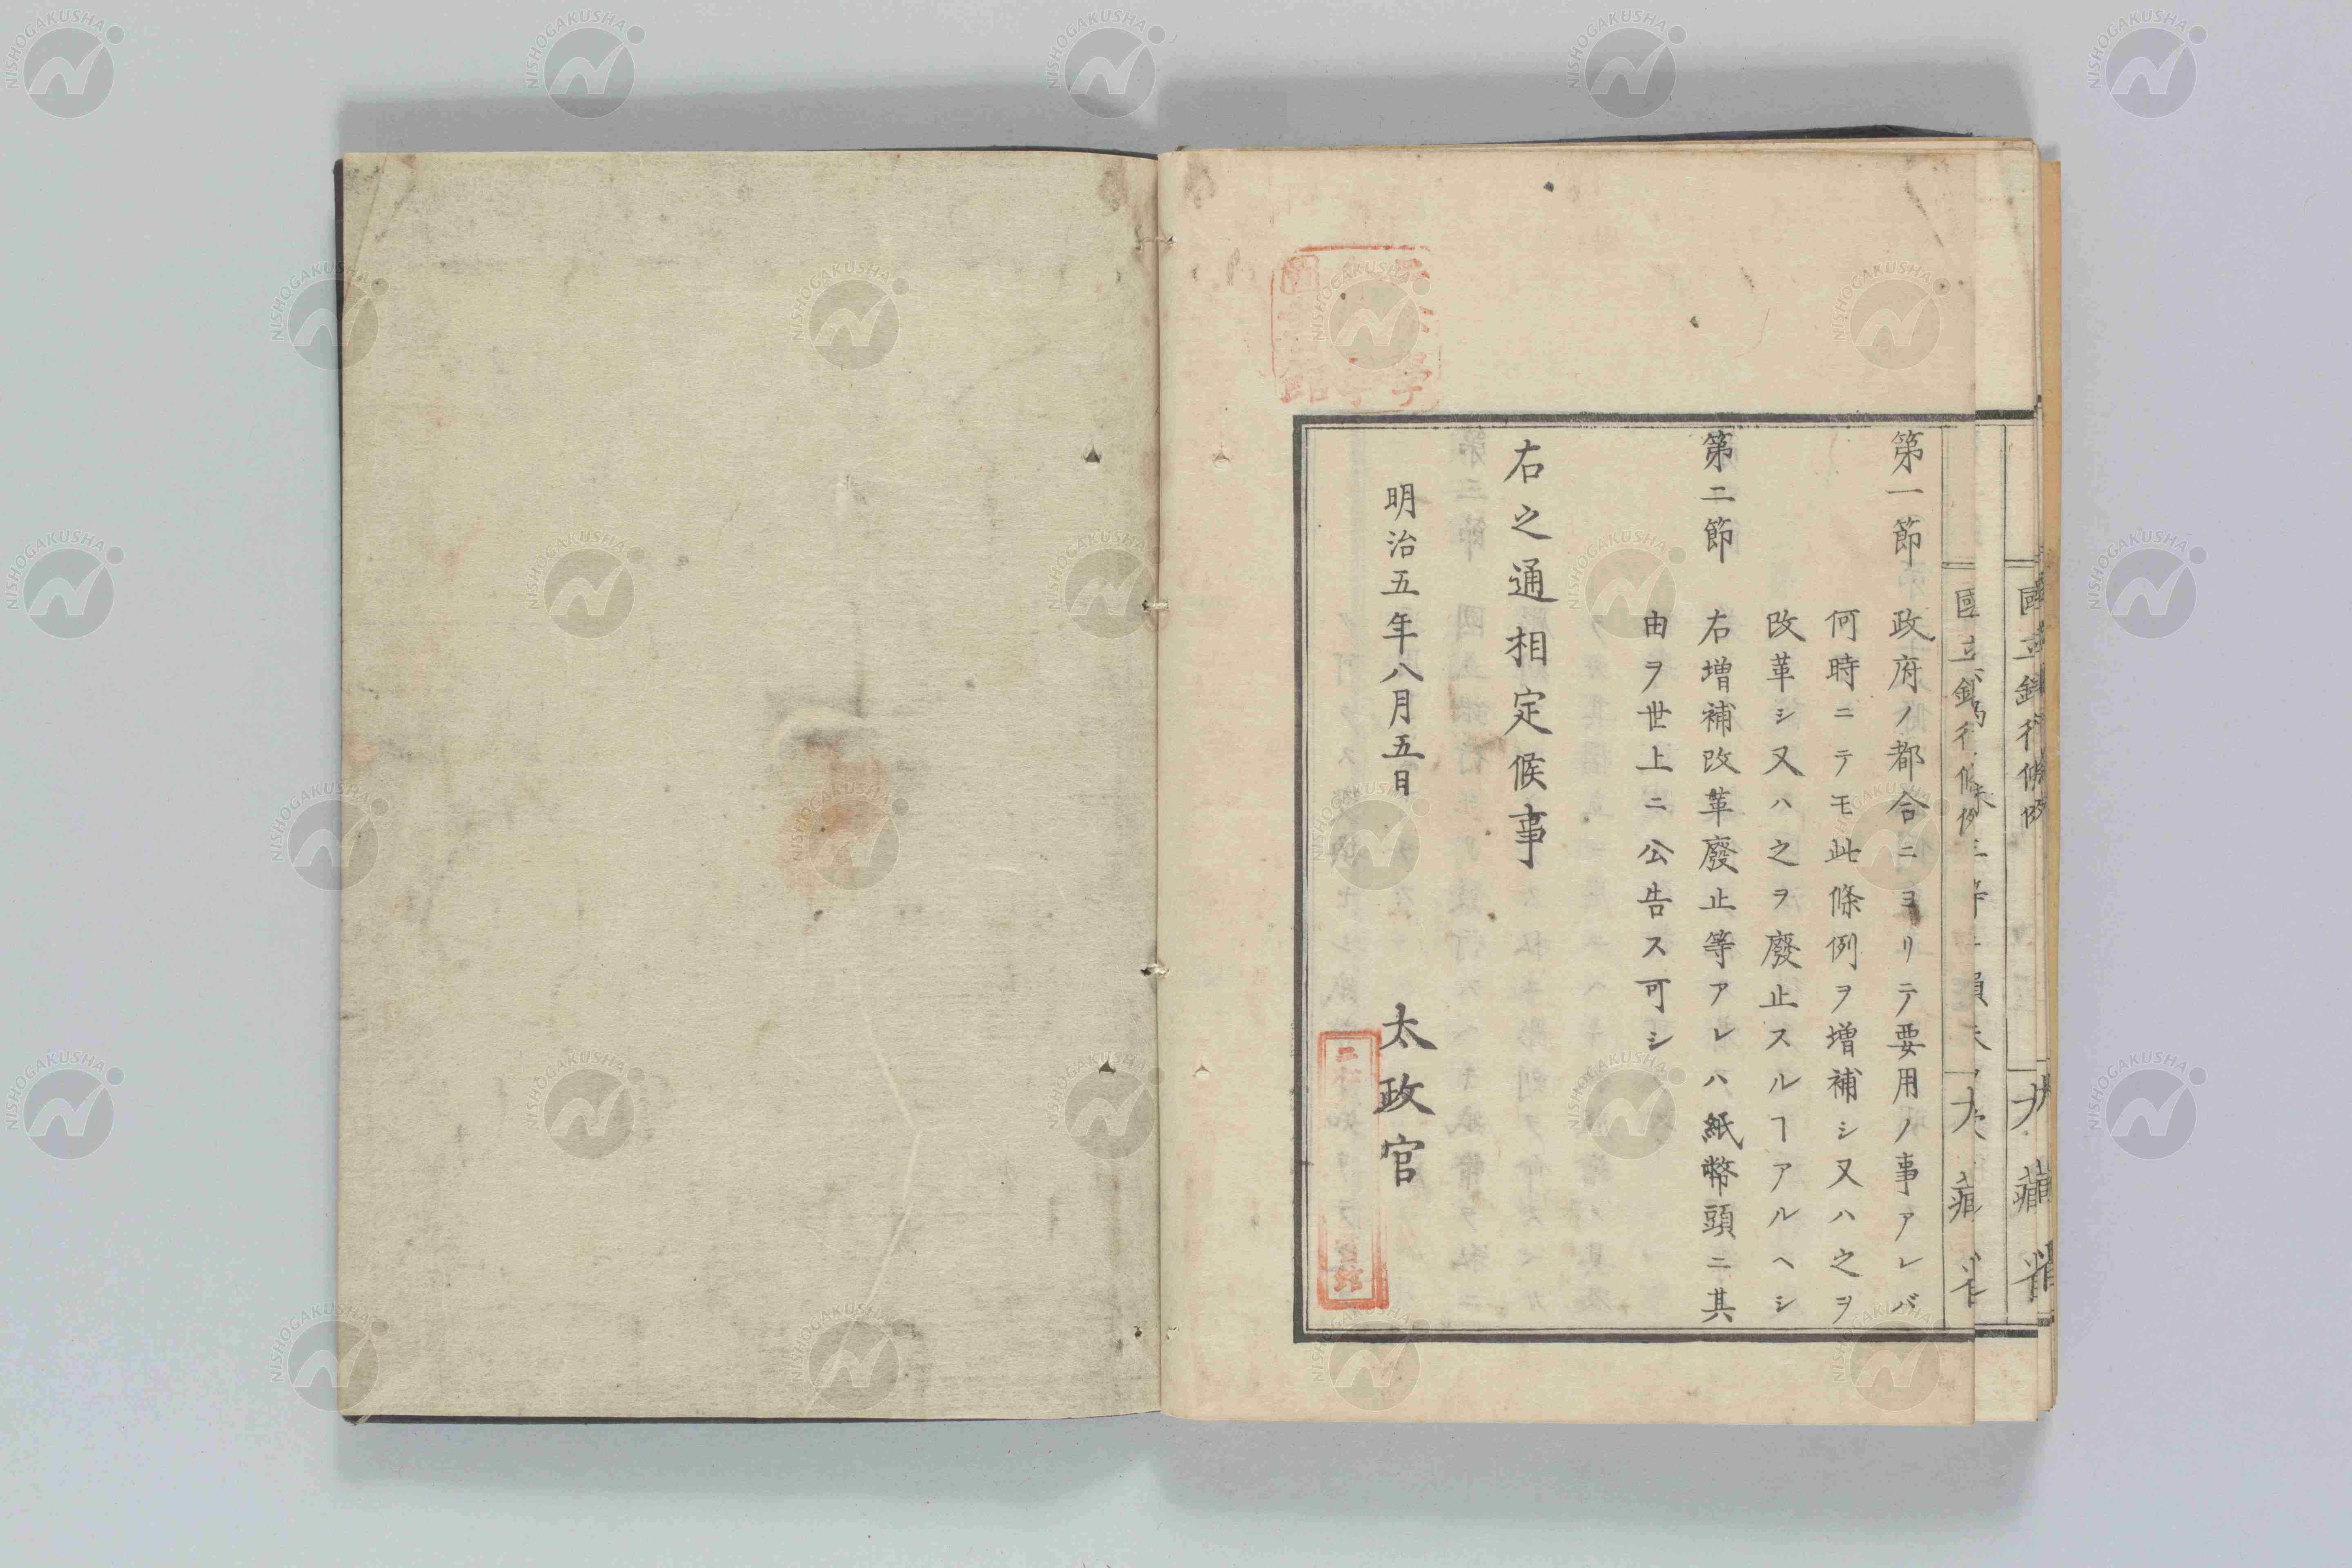 第一節 政府ノ都合ニヨリテ要用ノ事アレバ
何時ニテモ此條例ヲ増補シ又ハ之ヲ
改革シ又ハ之ヲ廢止スルヿアルヘシ
第二節 右増補改革廢止等アレハ紙幣頭ニ其
由ヲ世上ニ公告ス可シ
右之通相定候事
明治五年八月五日 太政官
NISHOGAKUSHA